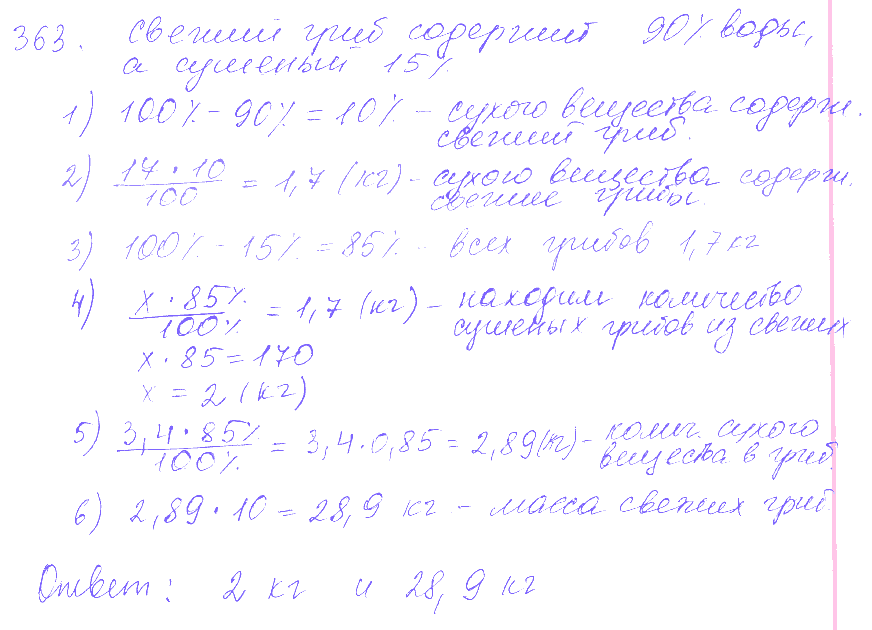 363. Свежий гриб содержит 90% воды,
а сушеный 15%.
1) 100% - 90% = 10% - сухого вещества содерж.
свежий гриб.
2) 17 · 10 / 100 = 1,7 (кг) - сухого вещества содерж.
свежие грибы.
3) 100% - 15% = 85% - всех грибов 1,7 кг
4) x · 85% / 100% = 1,7 (кг) - находим количество
сушеных грибов из свежих
x · 85 = 170
x = 2 (кг)
5) 3,4 · 85% / 100% = 3,4 · 0,85 = 2,89 (кг) - колич. сухого
вещества в гриб.
6) 2,89 · 10 = 28,9 кг - масса свежих гриб.
Ответ: 2 кг и 28,9 кг